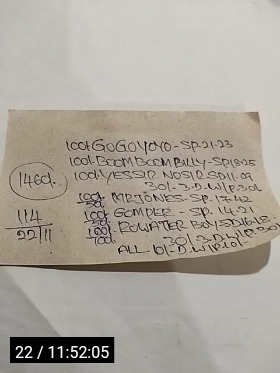 100l. GOGOYOYO-SP-21-23
100l. BOOMBOOMBILLY-SP.18-25
100l. YESSIR NOSIR SD11.09
30l-3.D.W/P.30l
1460l.
100l. MRJONES-SP-17-42
50l.
100l. GOMPER - SP. 14-21
50l.
100l. ROWATER BOY SD16.18
100l.
30l-3.D.W/P.30l
ALL. 10l-D.W/P.10l-
114
22/11
22 / 11:52:05